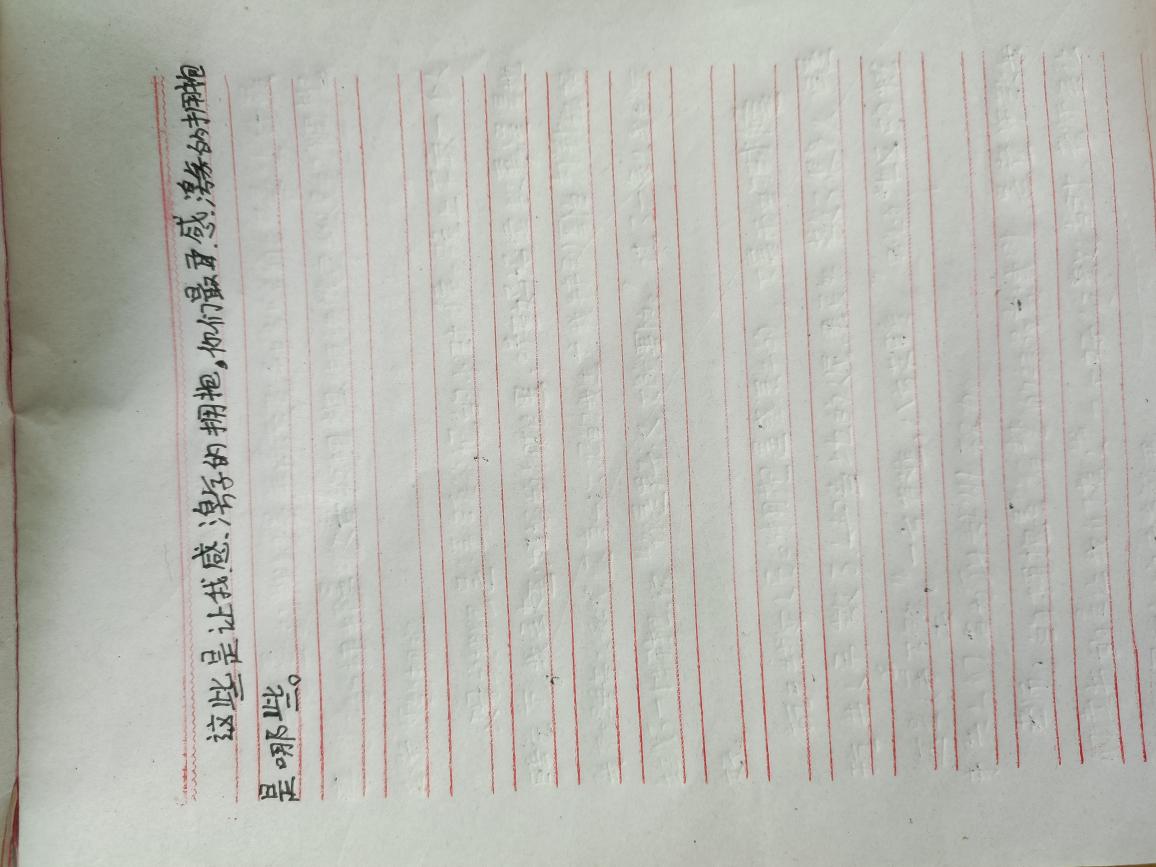 这些是让我感激的拥抱,你们最可感激的拥抱
是哪些。